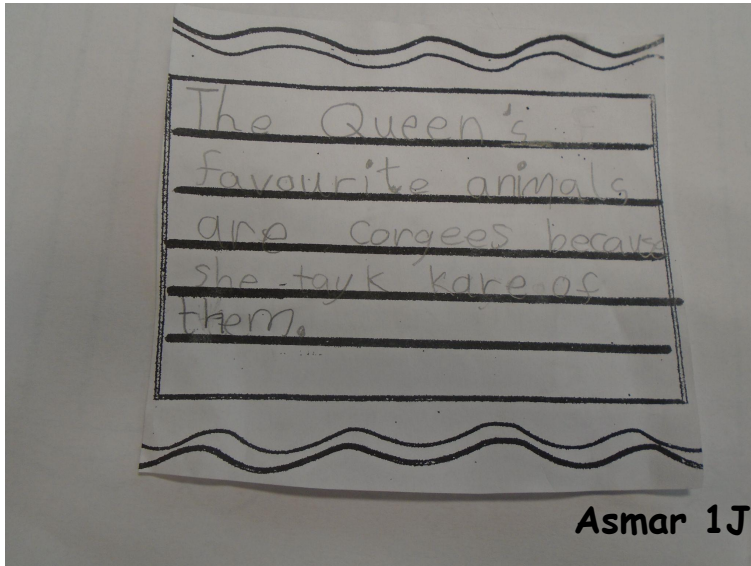 The Queen's
favourite animals
are corgees because
she tayk kare of
them.
Asmar 1J